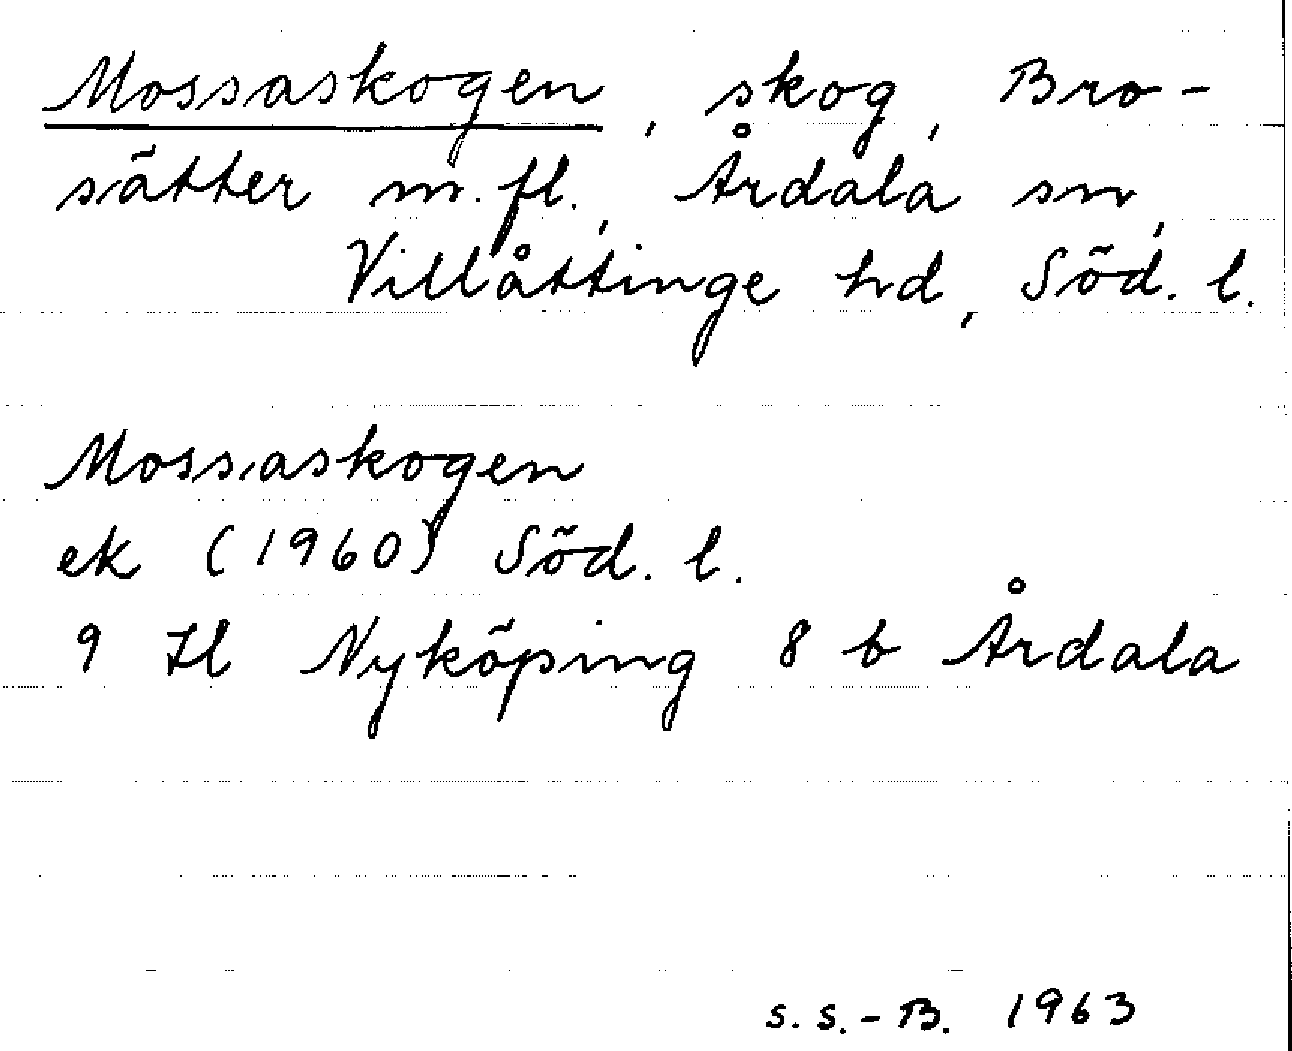 Mossaskogen, skog, Bro-
sätter m.fl., Årdala sn,
Villåttinge hd, Söd. l.
Mossaskogen
ek (1960) Söd. l.
9 H Nyköping 8 b Årdala
S.S.-B. 1963